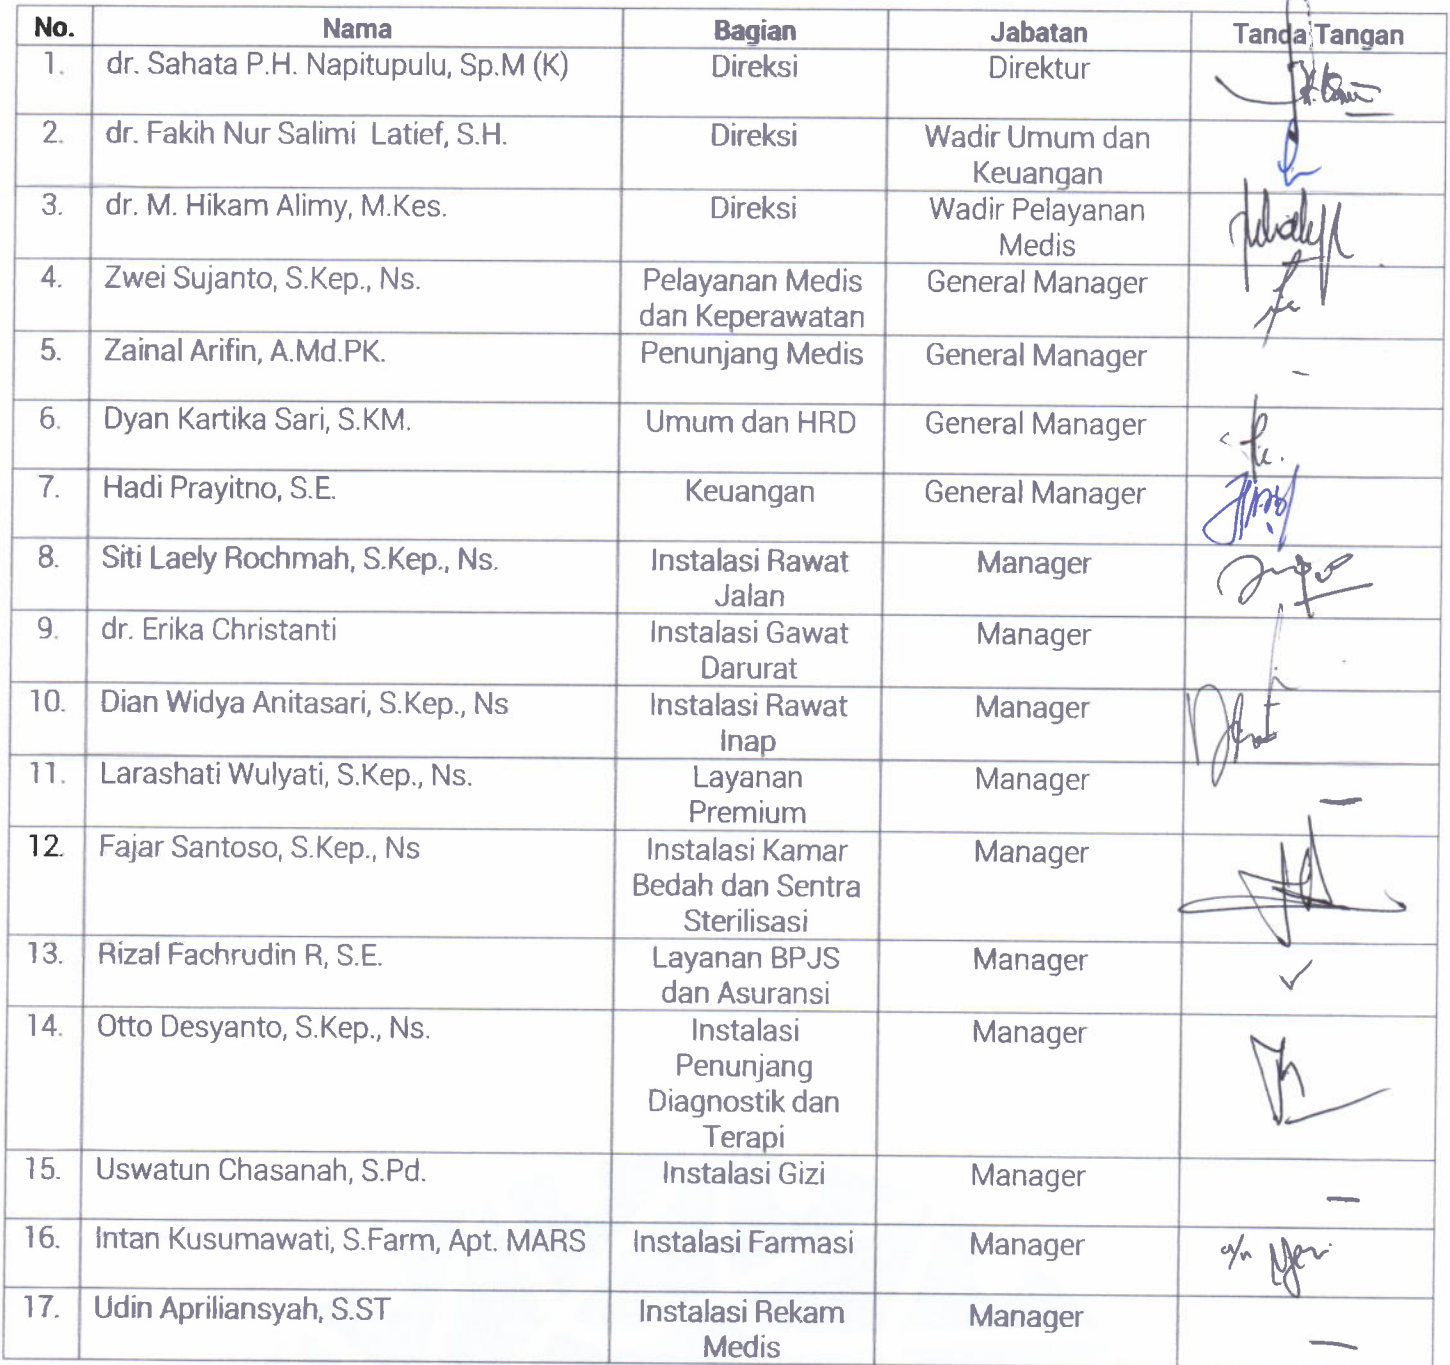 No. Nama Bagian Jabatan Tanda Tangan
1. dr. Sahata P.H. Napitupulu, Sp.M (K) Direksi Direktur
2. dr. Fakih Nur Salimi Latief, S.H. Direksi Wadir Umum dan
Keuangan
3. dr. M. Hikam Alimy, M.Kes. Direksi Wadir Pelayanan
Medis
4. Zwei Sujanto, S.Kep., Ns. Pelayanan Medis General Manager
dan Keperawatan
5. Zainal Arifin, A.Md.PK. Penunjang Medis General Manager -
6. Dyan Kartika Sari, S.KM. Umum dan HRD General Manager
7. Hadi Prayitno, S.E. Keuangan General Manager
8. Siti Laely Rochmah, S.Kep., Ns. Instalasi Rawat Manager
Jalan
9. dr. Erika Christanti Instalasi Gawat Manager
Darurat
10. Dian Widya Anitasari, S.Kep., Ns Instalasi Rawat Manager
Inap
11. Larashati Wulyati, S.Kep., Ns. Layanan Manager -
Premium
12. Fajar Santoso, S.Kep., Ns Instalasi Kamar Manager
Bedah dan Sentra
Sterilisasi
13. Rizal Fachrudin R, S.E. Layanan BPJS Manager ✓
dan Asuransi
14. Otto Desyanto, S.Kep., Ns. Instalasi Manager
Penunjang
Diagnostik dan
Terapi
15. Uswatun Chasanah, S.Pd. Instalasi Gizi Manager -
16. Intan Kusumawati, S.Farm, Apt. MARS Instalasi Farmasi Manager a/n
17. Udin Apriliansyah, S.ST Instalasi Rekam Manager -
Medis